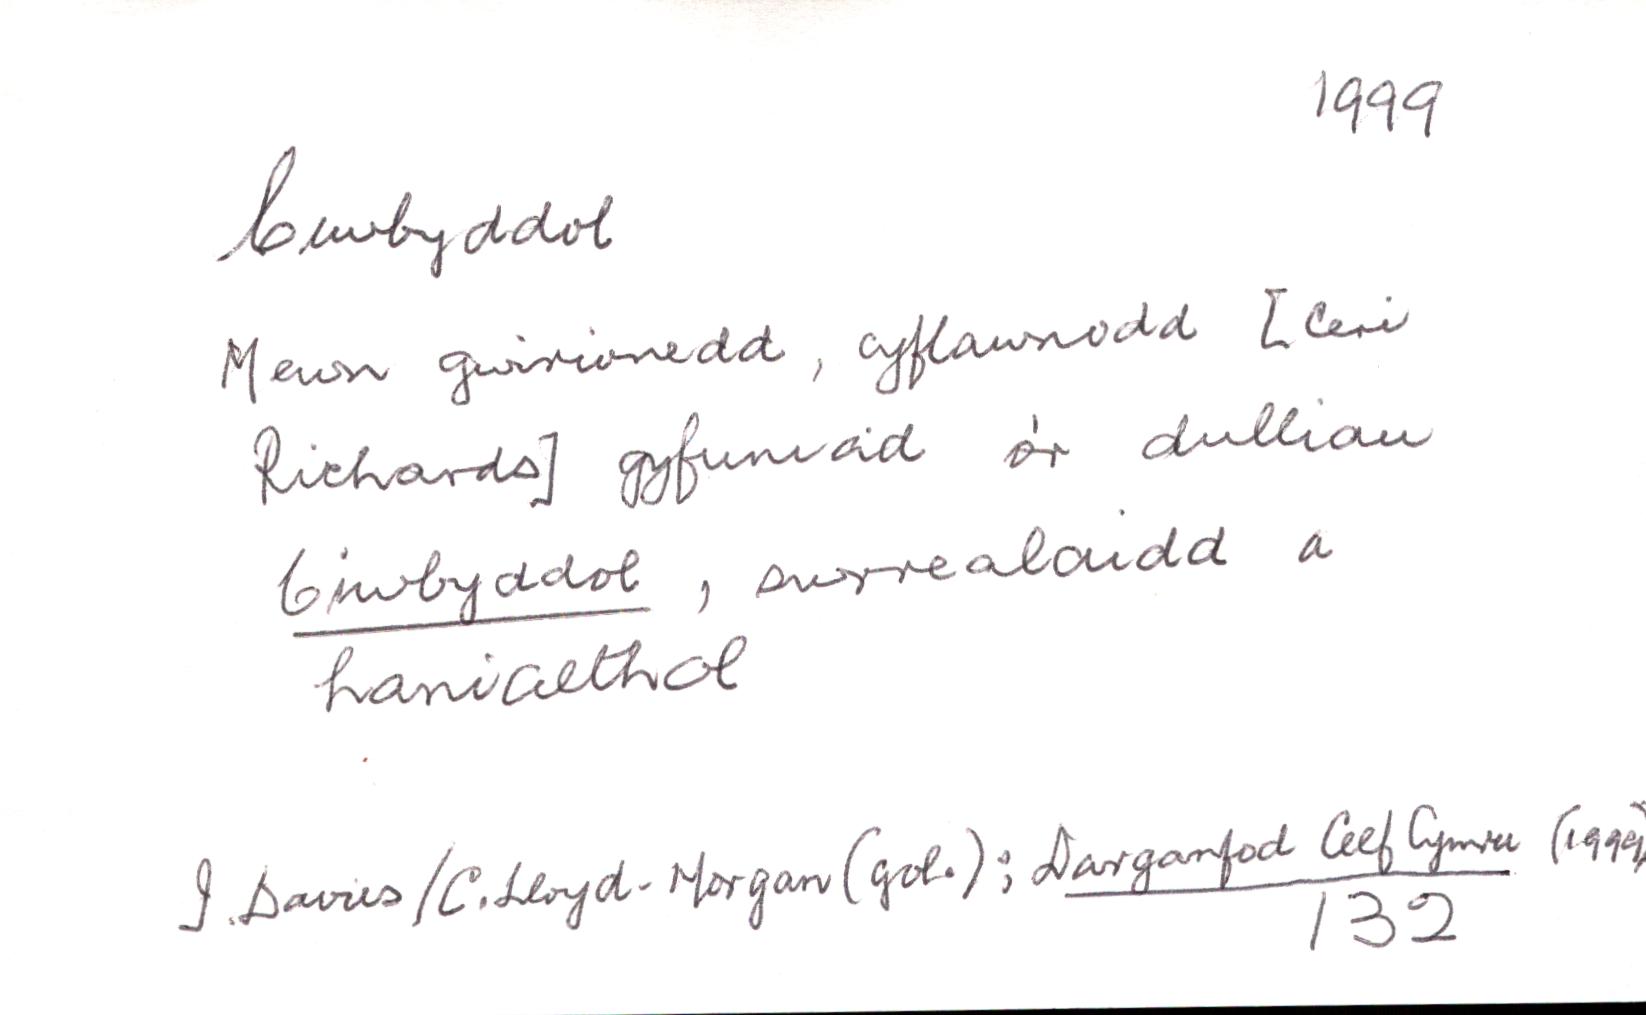 1999
Ciwbyddol
Mewn gwirionedd, cyflawnodd [Ceri
Richards] gyfuniad o'r dulliau
Ciwbyddol, swrrealaidd a
haniaethol
I. Davies/C. Lloyd-Morgan (gol.); Darganfod Celf Cymru (1999)
132